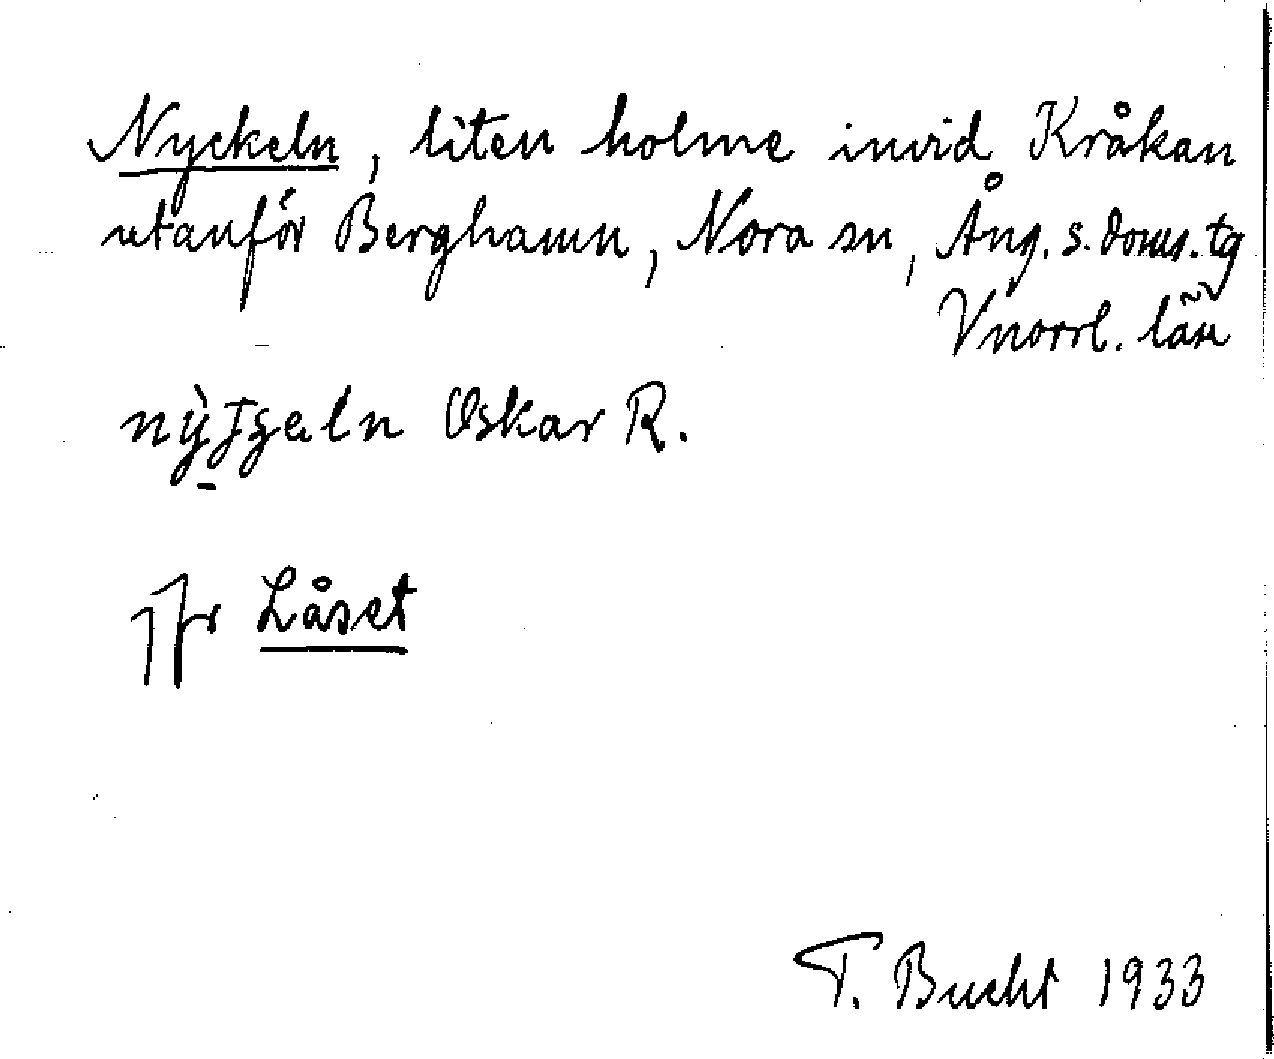 Nyckeln, liten holme invid Kråkan
utanför Berghamn, Nora sn, Ång. s. doms. tg
Vnorrl. län
Oskar R.
jfr Låset
T. Bucht 1933